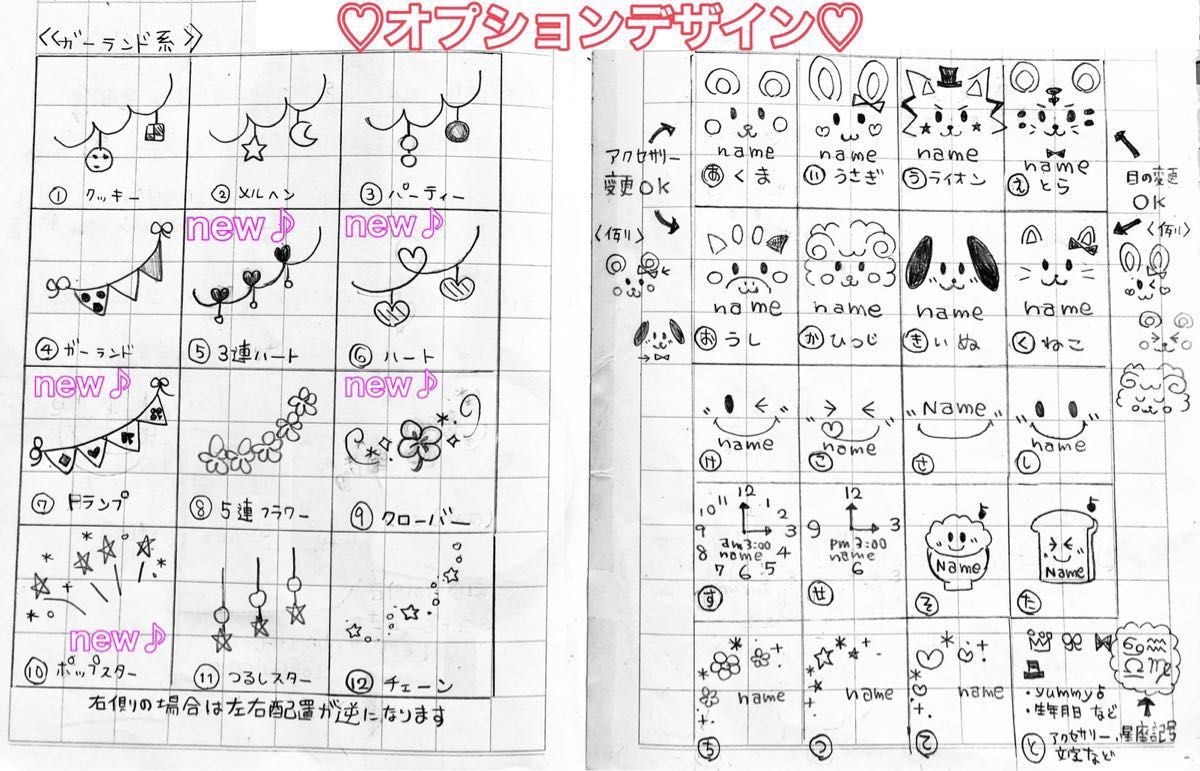 ♡オプションデザイン♡
《ガーランド系》
① クッキー
② メルヘン
③ パーティー
new♪
new♪
④ ガーランド
⑤ 3連ハート
⑥ ハート
new♪
new♪
⑦ トランプ
⑧ 5連フラワー
⑨ クローバー
new♪
⑩ ポップスター
⑪ つるしスター
⑫ チェーン
右側の場合は左右配置が逆になります
アクセサリー
変更OK
〈例〉
name
あ くま
name
い うさぎ
name
う ライオン
name
え とら
目の変更
OK
〈例〉
name
お うし
name
か ひつじ
name
き いぬ
name
く ねこ
name
け
name
こ
Name
さ
name
し
12
11 1
10 2
9 3
am 3:00
8 name 4
7 6 5
す
12
9 3
pm 3:00
name
6
せ
Name
そ
Name
た
name
ち
name
つ
name
て
・yummy♪
・生年月日 など
と アクセサリー、
文字など
♋♒
♎♍
星座記号